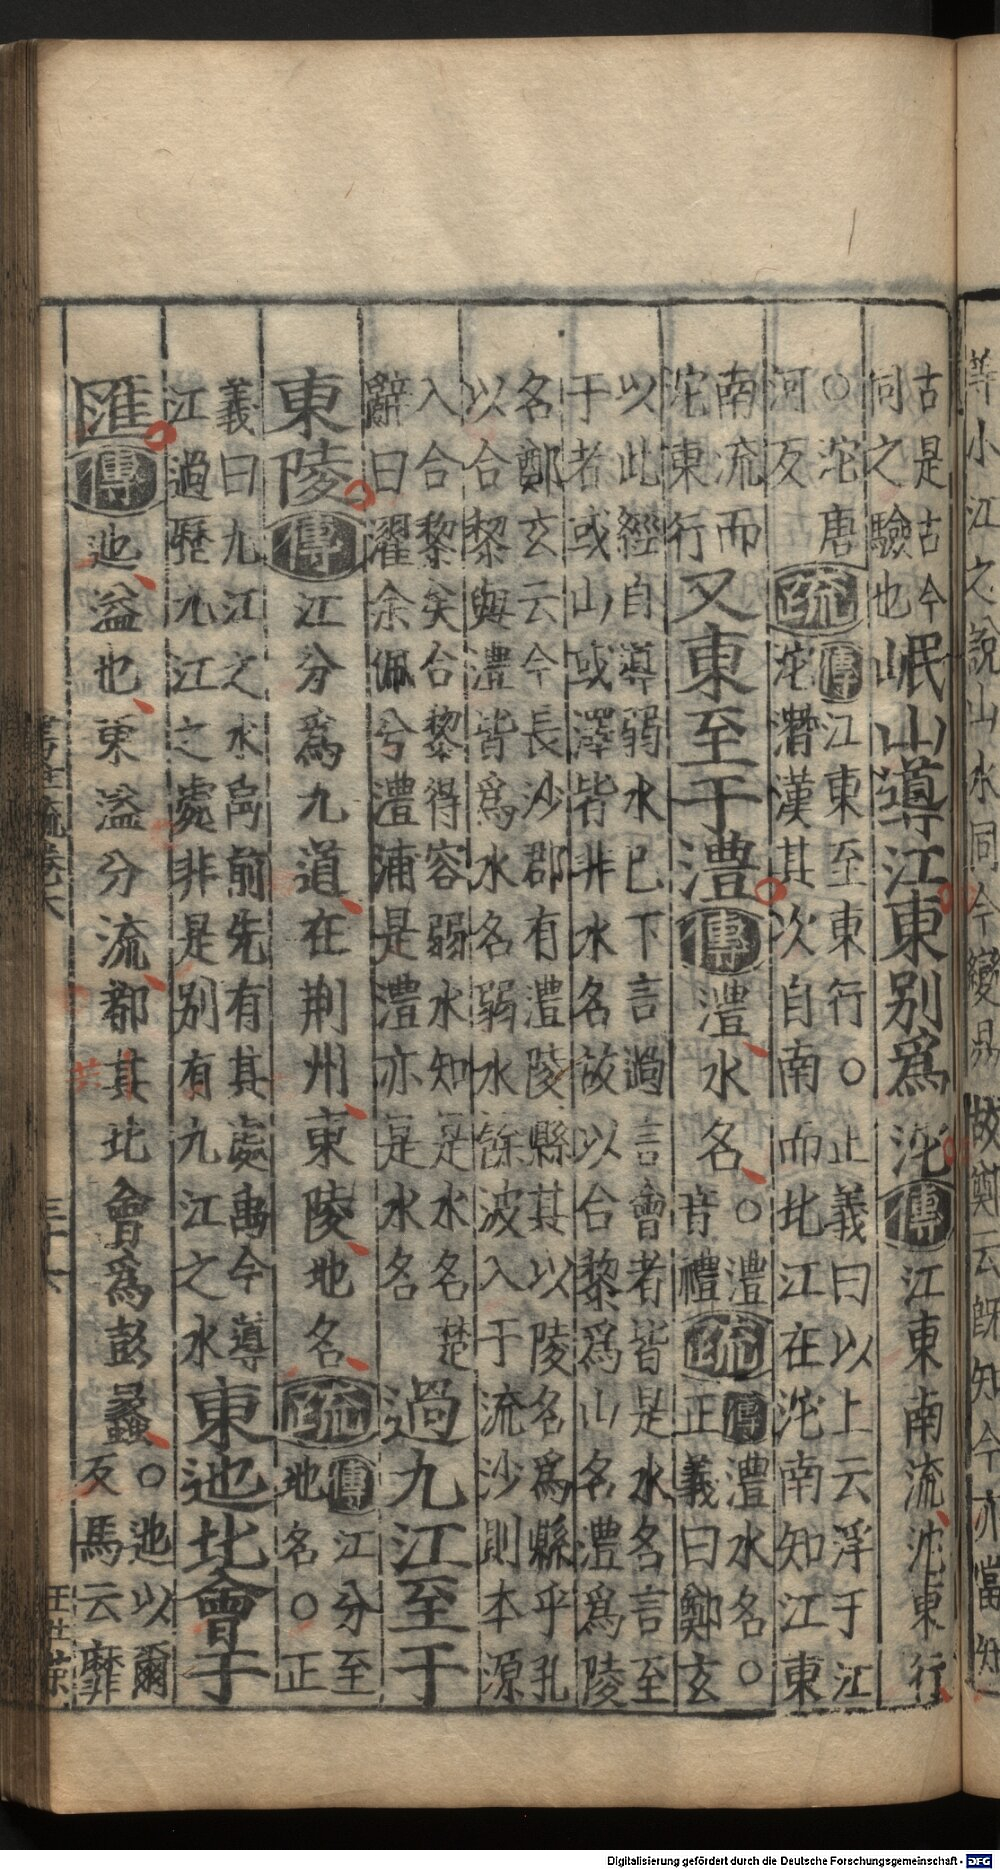 等小江之說山水同今變易故鄭云旣知今亦當知
古是古今
同之驗也
岷山導江東別爲沱傳江東南流沱東行
○沱唐
河反
疏
傳江東至東行○正義曰以上云浮于江
沱潛漢其次自南而北江在沱南知江東
南流而
沱東行
又東至于澧傳澧水名
○澧
音禮
疏
傳澧水名○
正義曰鄭玄
以此經自導弱水已下言過言會者皆是水名言至
于者或山或澤皆非水名故以合黎爲山名澧爲陵
名鄭玄云今長沙郡有澧陵縣其以陵名爲縣乎孔
以合黎與澧皆爲水名弱水餘波入于流沙則本源
入合黎矣合黎得容弱水知是水名楚
辭曰濯余佩兮澧浦是澧亦是水名
過九江至于
東陵傳江分爲九道在荆州東陵地名疏
傳江分至
地名○正
義曰九江之水禹前先有其處禹今導
江過歷九江之處非是別有九江之水
東迆北會于
匯傳迆溢也東溢分流都共北會爲彭蠡
○迆以爾
反馬云靡
三十六
Digitalisierung gefördert durch die Deutsche Forschungsgemeinschaft - DFG